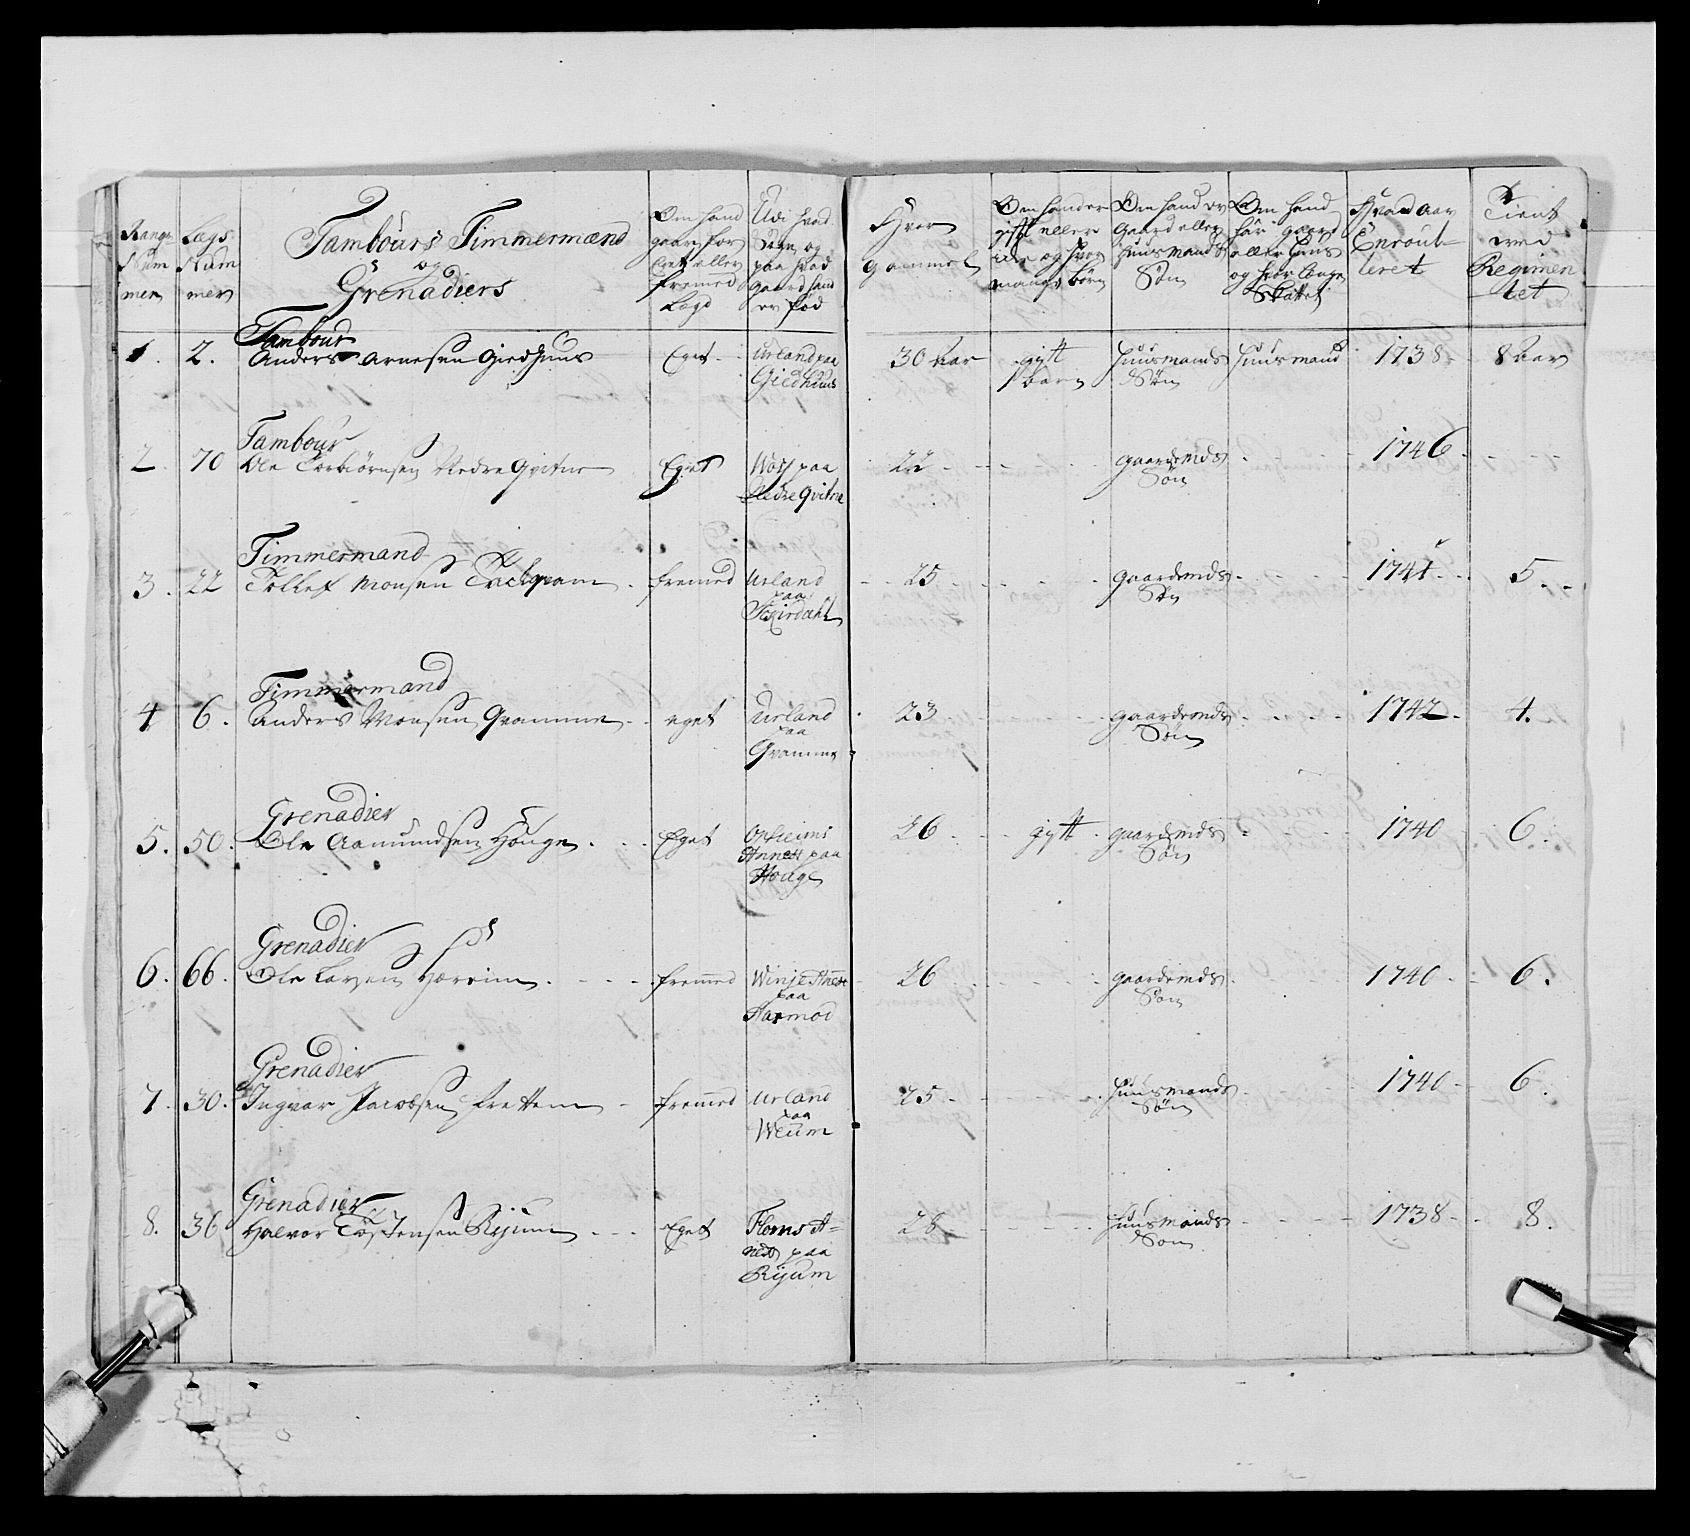 Range
Num
mer
Lægs
Num
mer
Tambours Timmermænd
og
Grenadiers
Om hand
gaar for
Eget eller
fremed
Lægd
Udi hvad
Sogn og
paa hvad
Gaard hand
er fød
Hvor
gammel
Om hand er
gift eller
ey og hvor
mange børn
Om hand er
Gaard eller
huusmands
Søn
Om hand
har gaard
eller huus
og hvor længe
Skattet
Hvad aar
Enroul-
leret
Tient
ved
Regimen
tet
1. 2. Tambour
Anders Arnesen Giedhuus Eget - Urland paa
Giedhuus 30 aar gift
1 barn huusmands
Søn huusmand 1738 - 8 aar
2 70 Tambour
Ole Torbiørnsen Nedre Qvitne Eget Woss paa
Nedre Qvitne 22 - - - gaardmds
Søn - - 1746 - - -
3. 22 Timmermand
Tollef Monsen - fremed Urland
paa
25 - - - gaardmds
Søn - - - 1741 - - 5. -
4 6. Timmermand
Anders Monsen Gramme - - eget Urland
paa
Gramme 23 - - - gaardmds
Søn - - - 1742 - 4.
5. 50. Grenadier
Ole Aamundsen Houge - - - Eget Opheims
Annex paa
Houge 26 - - gift - gaardmds
Søn - - - 1740 6.
6. 66. Grenadier
Ole Larsen Hærrim - - - fremed Winje Annex
paa
Aarmod 26 - - - gaardmds
Søn - - 1740 - 6.
7. 30. Grenadier
Ingvar Jacobsen Frettem - fremed Urland
paa
Weum 25 - - - huusmands
Søn - - - 1740 - 6.
8. 36 Grenadier
Halvor Tostensen Ryum - - - Eget Floms A-
nex paa
Ryum 28 - - - huusmands
Søn - - - 1738 - - 8.